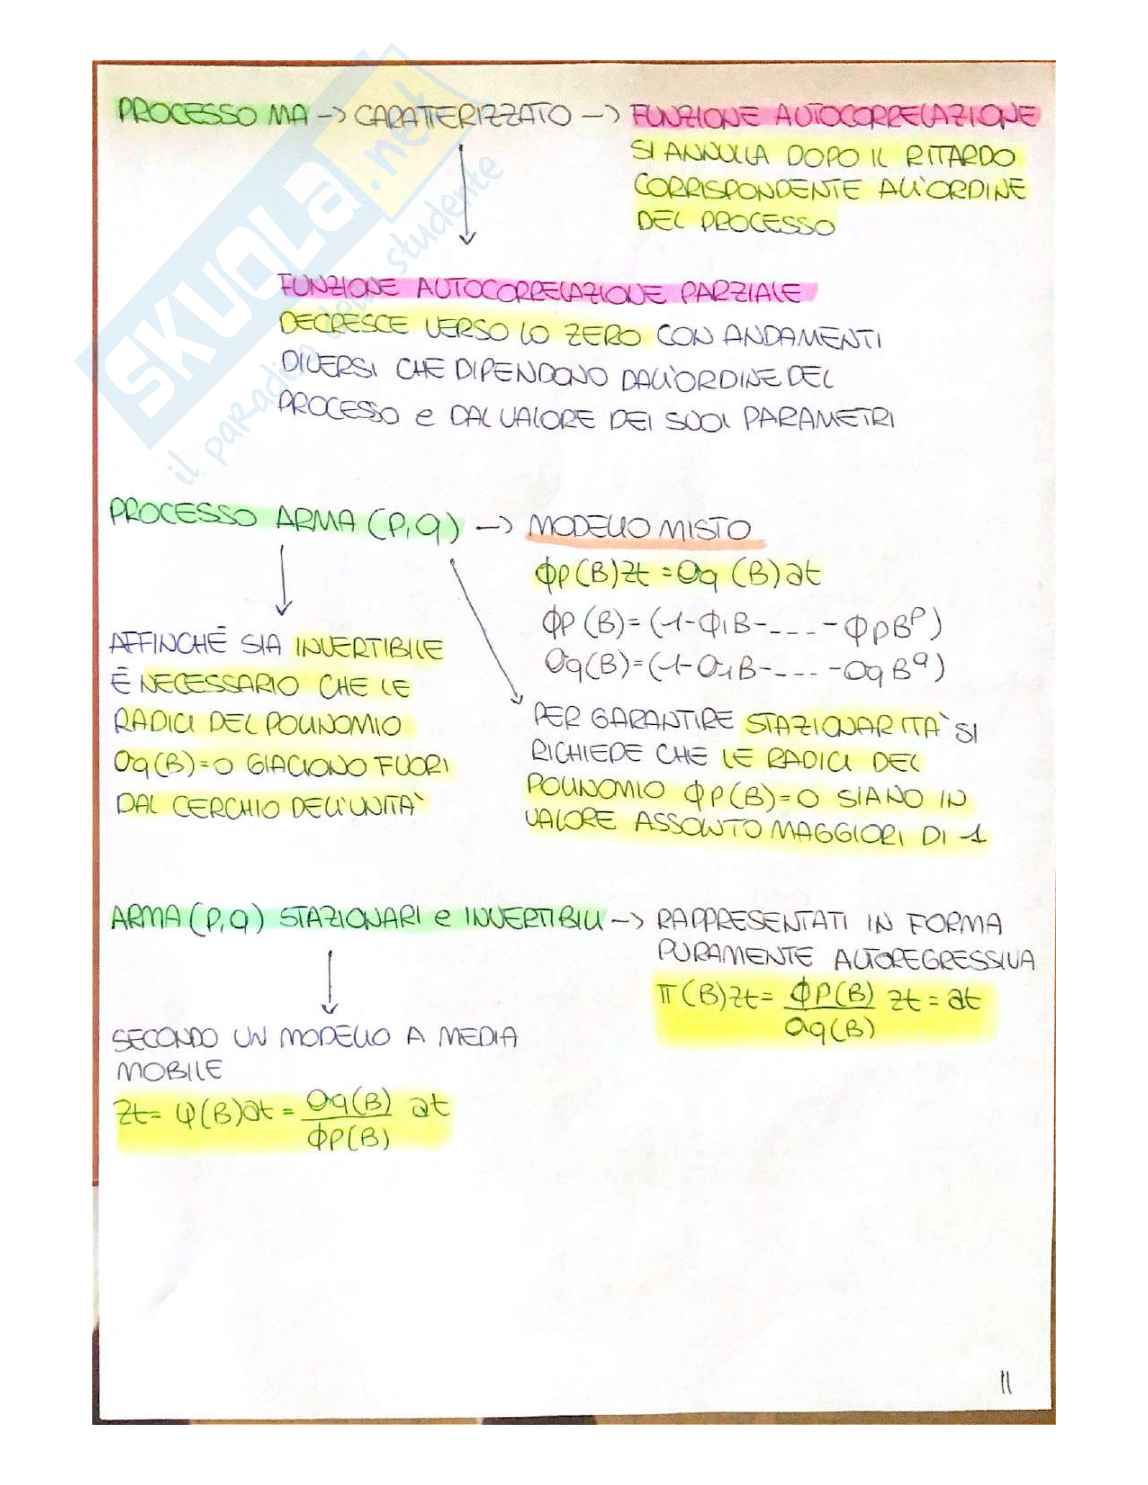 PROCESSO MA -> CARATTERIZZATO -> FUNZIONE AUTOCORRELAZIONE
SI ANNULLA DOPO IL RITARDO
CORRISPONDENTE ALL'ORDINE
DEL PROCESSO
FUNZIONE AUTOCORRELAZIONE PARZIALE
DECRESCE VERSO LO ZERO CON ANDAMENTI
DIVERSI CHE DIPENDONO DALL'ORDINE DEL
PROCESSO e DAL VALORE DEI SUOI PARAMETRI
PROCESSO ARMA (P,q) -> MODELLO MISTO
ϕp(B)Zt = θq (B)at
ϕp (B)=(1-ϕ1B-....-ϕpB^p)
θq(B)=(1-θ1B-....-θqB^q)
AFFINCHÉ SIA INVERTIBILE
È NECESSARIO CHE LE
RADICI DEL POLINOMIO
θq(B)=0 GIACIONO FUORI
DAL CERCHIO DELL'UNITA`
PER GARANTIRE STAZIONARITA` SI
RICHIEDE CHE LE RADICI DEL
POLINOMIO ϕp(B)=0 SIANO IN
VALORE ASSOLUTO MAGGIORI DI 1
ARMA (P,q) STAZIONARI e INVERTIBILI -> RAPPRESENTATI IN FORMA
PURAMENTE AUTOREGRESSIVA
π(B)Zt = ϕp(B)/θq(B) Zt = at
SECONDO UN MODELLO A MEDIA
MOBILE
Zt = ψ(B)at = θq(B)/ϕp(B) at
11
SKUOLA.net
il paradiso dello studente